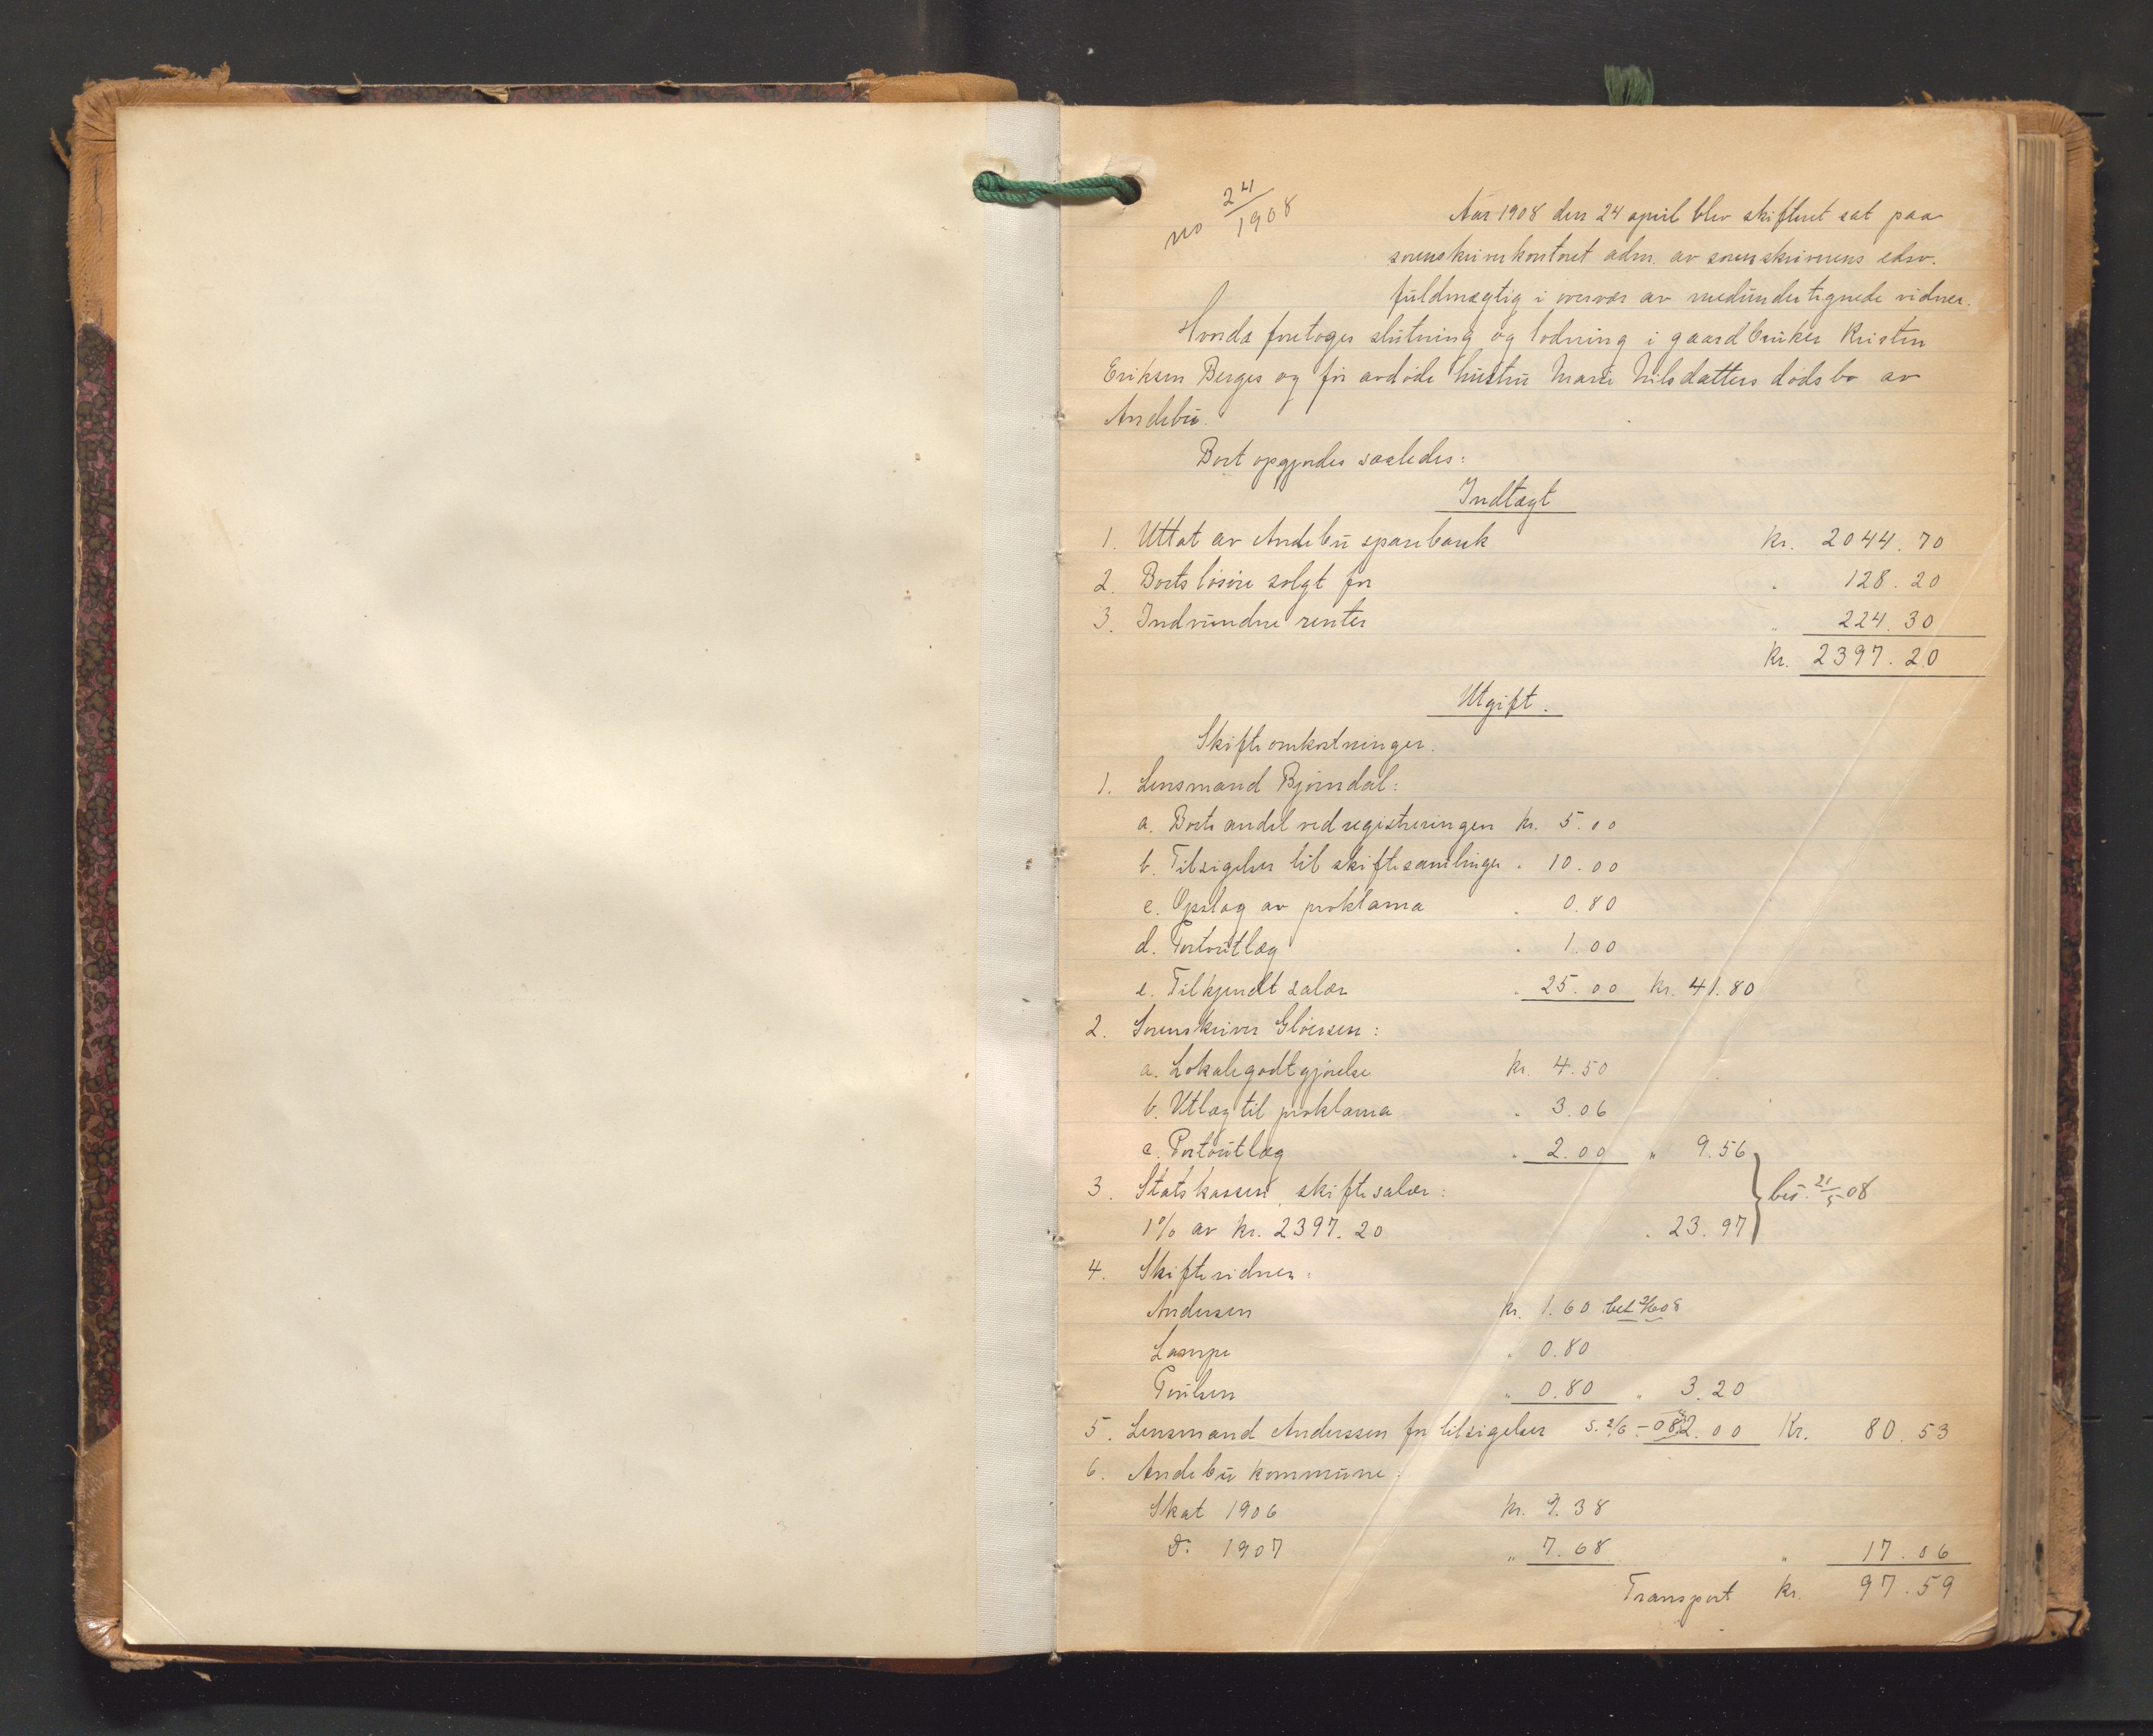 no 24/1908
Aar 1908 den 24 april blev skifteret sat paa
sorenskriverkontoret adm. av sorenskriverens edsv.
fuldmægtig i overvær av medundertegnede vidner.
Hvorda foretoges slutning og lodning i gaardbruker Kristen
Eriksen Berges og før avdøde hustru Marie Nilsdatters dødsbo av
Andebu.
Boet opgjordes saaledes:
Indtægt
1. Uttat av Andebu sparebank Kr. 2044.70
2. Boets løsøre solgt for " 128.20
3. Indvundne renter " 224.30
Kr. 2397.20
Utgift.
Skifteomkostninger.
1. Lensmand Bjørndal:
a. Boets andel ved registreringen kr. 5.00
b. Tilsigelser til skiftesamlinger " 10.00
c. Opslag av proklama " 0.80
d. Portoutlæg " 1.00
e. Tilkjendt salær " 25.00 kr. 41.80
2. Sorenskriver Gløersen:
a. Lokalegodtgjørelse kr. 4.50
b. Utlæg til proklama " 3.06
c. Portoutlæg " 2.00 " 9.56
3. Statskassen, skiftesalær: 21/5 08
1% av kr. 2397.20 " 23.97
4. Skiftevidner:
Andersen kr. 1.60 bet 2/6 08
Lampe " 0.80
Poulsen " 0.80 " 3.20
5. Lensmand Anderssen for tilsigelser s. 2/6 - 08 " 2.00 Kr. 80.53
6. Andebu kommune:
Skat 1906 kr. 9.38
Do 1907 " 7.68 " 17.06
Transport kr. 97.59